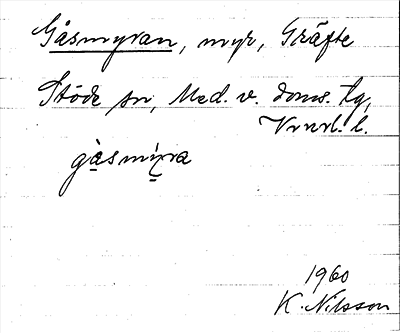 Gåsmyran, myr, Gräfte
Stöde sn, Med. v. doms. tg,
Vrnrl. l.
gåsmyra
1960
K. Nilsson